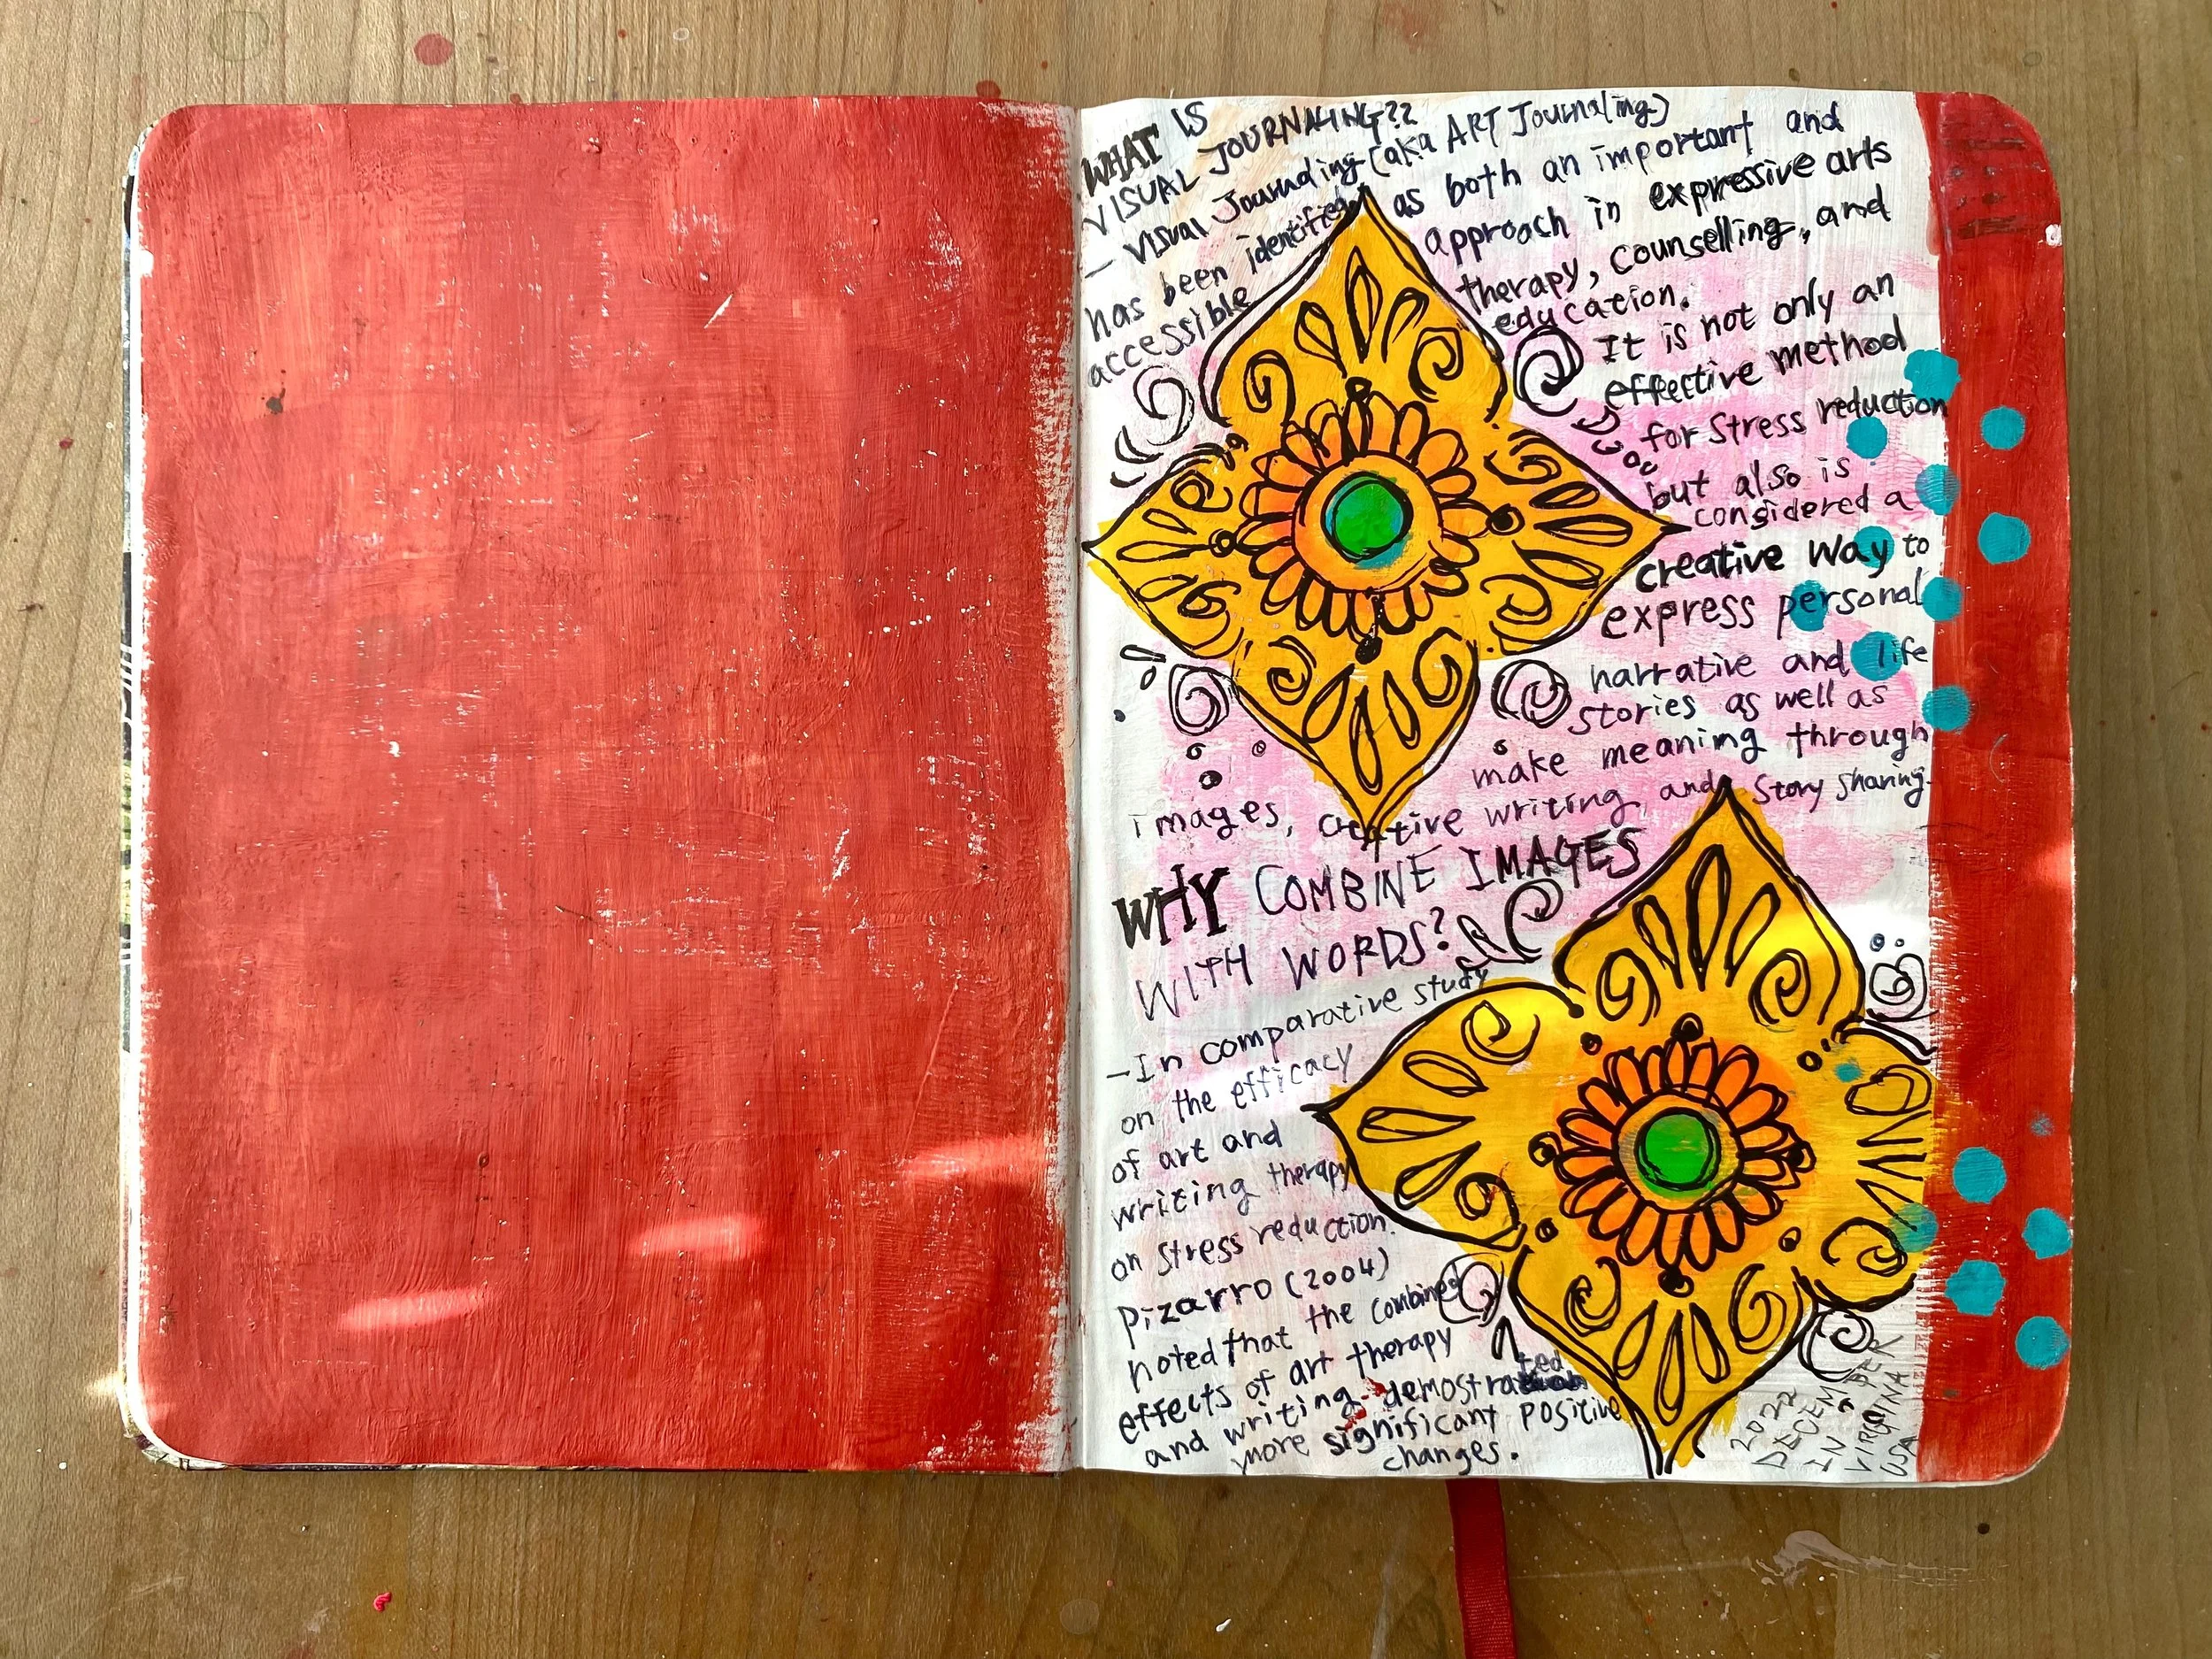 WHAT IS
VISUAL JOURNALING??
— Visual Journaling (aka ART Journaling)
has been identified as both an important and
accessible approach in expressive arts
therapy, counselling, and
education.
It is not only an
effective method
for stress reduction
but also is
considered a
creative way to
express personal
narrative and life
stories as well as
make meaning through
images, creative writing, and story sharing.
WHY COMBINE IMAGES
WITH WORDS?
— In comparative study
on the efficacy
of art and
writing therapy
on stress reduction.
Pizarro (2004)
noted that the combined
effects of art therapy
and writing demostrated
more significant positive
changes.
2022
DECEMBER
IN
VIRGINA
USA